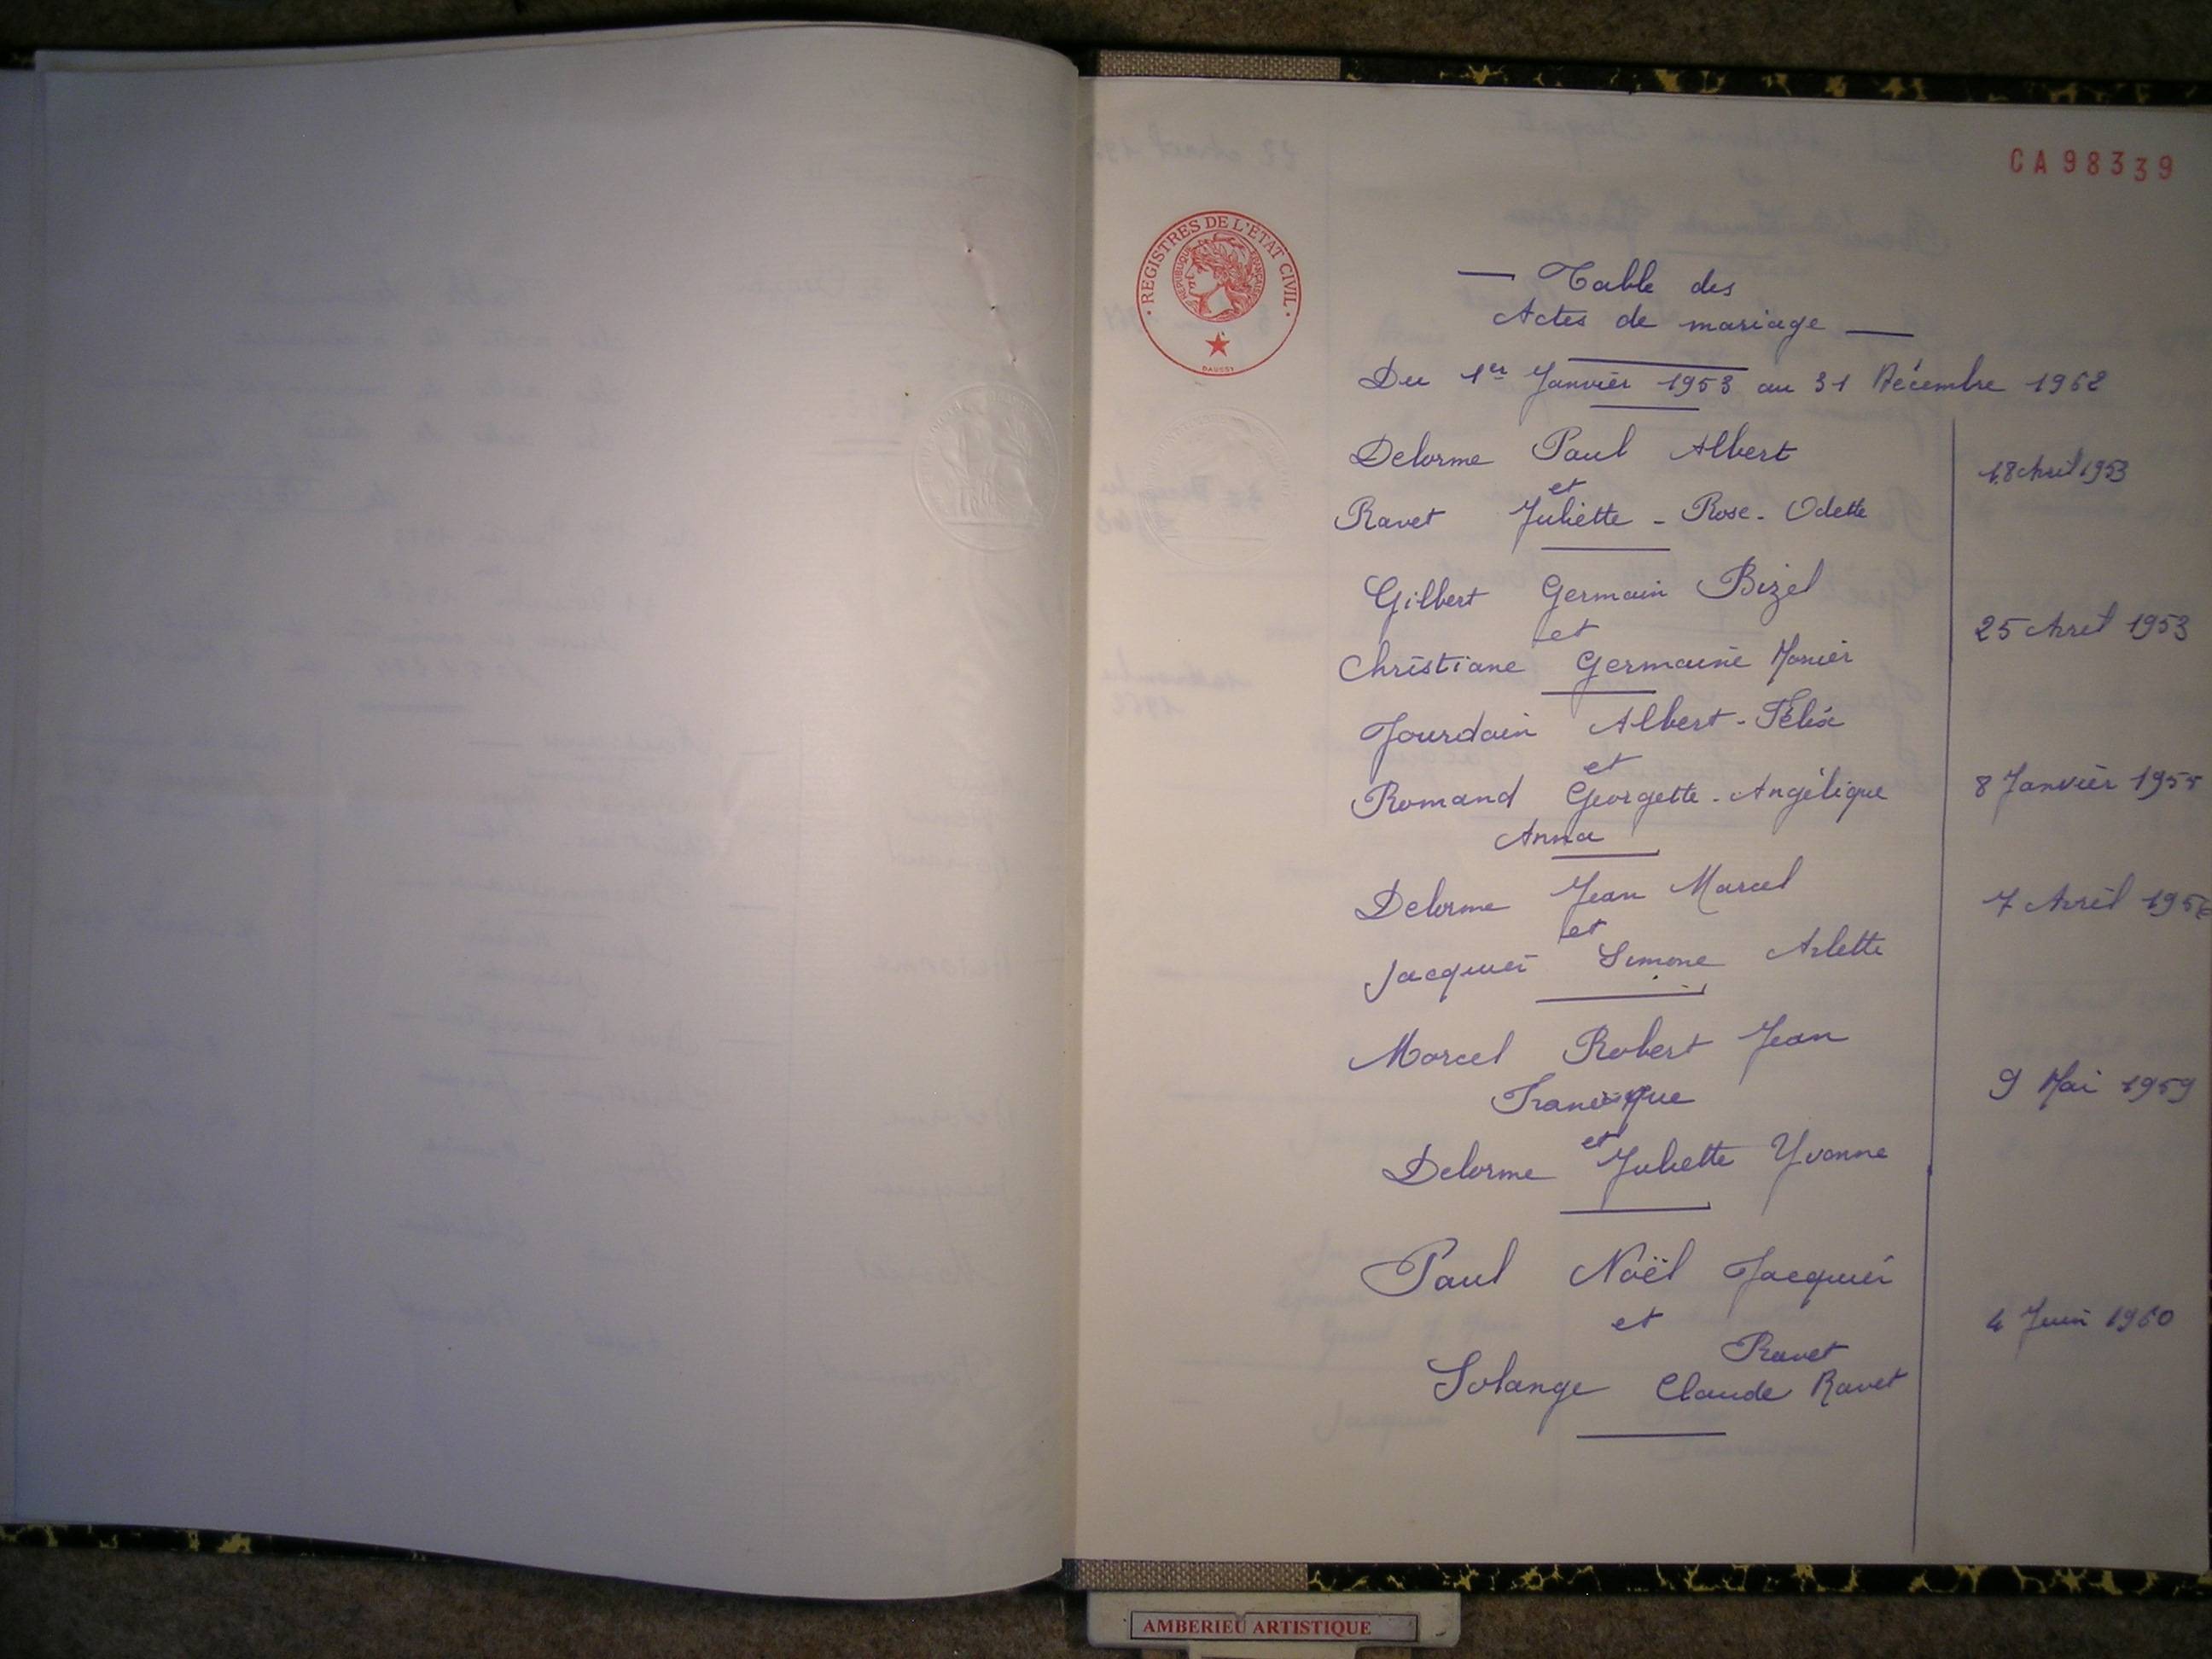 CA98339
REGISTRES DE L'ETAT CIVIL
REPUBLIQUE FRANCAISE
— Table des
Actes de mariage —
Du 1er Janvier 1953 au 31 Décembre 1962
Delorme Paul Albert
et
18 Avril 1953
Ravet Juliette - Rose - Odette
Gilbert Germain Bizel
et
25 Avril 1953
Christiane Germaine Monier
Jourdain Albert - Félix
et
8 Janvier 1955
Romand Georgette - Angélique
Anna
Delorme Jean Marcel
7 Avril 1956
et
Jacquier Simone Arlette
Marcel Robert Jean
9 Mai 1959
et
Delorme Juliette Yvonne
Paul Noël Jacquier
et
4 Juin 1960
Ravet
Solange Claude Ravet
AMBERIEU ARTISTIQUE